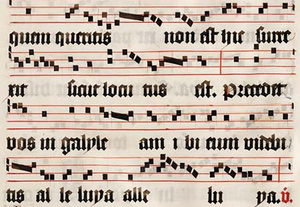 quem queritis non est hic surre
xit sicut locu tus est. Precedet
vos in galyle am i bi eum videbi
tis al le luya alle lu ya. v.